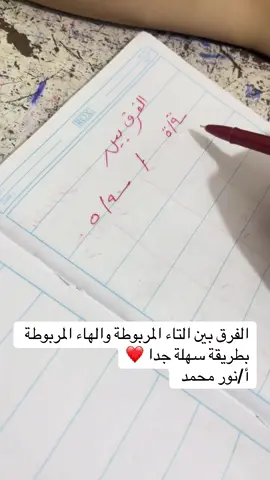 الفرق بين
ـة/ة / ـه/ه
الفرق بين التاء المربوطة والهاء المربوطة
بطريقة سهلة جدا ❤️
أ/نور محمد